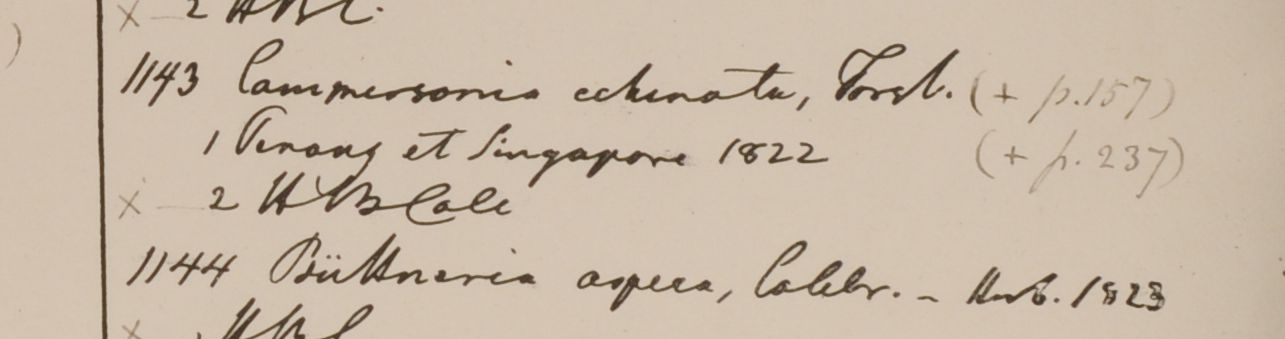 ) × 2 HBC.
1143 Commersonia echinata, Forst. (+ p.157)
1 Penang et Singapore 1822 (+ p. 237)
× 2 HB Calc
1144 Büttneria aspera, Colebr. - Herb. 1823
× HBC